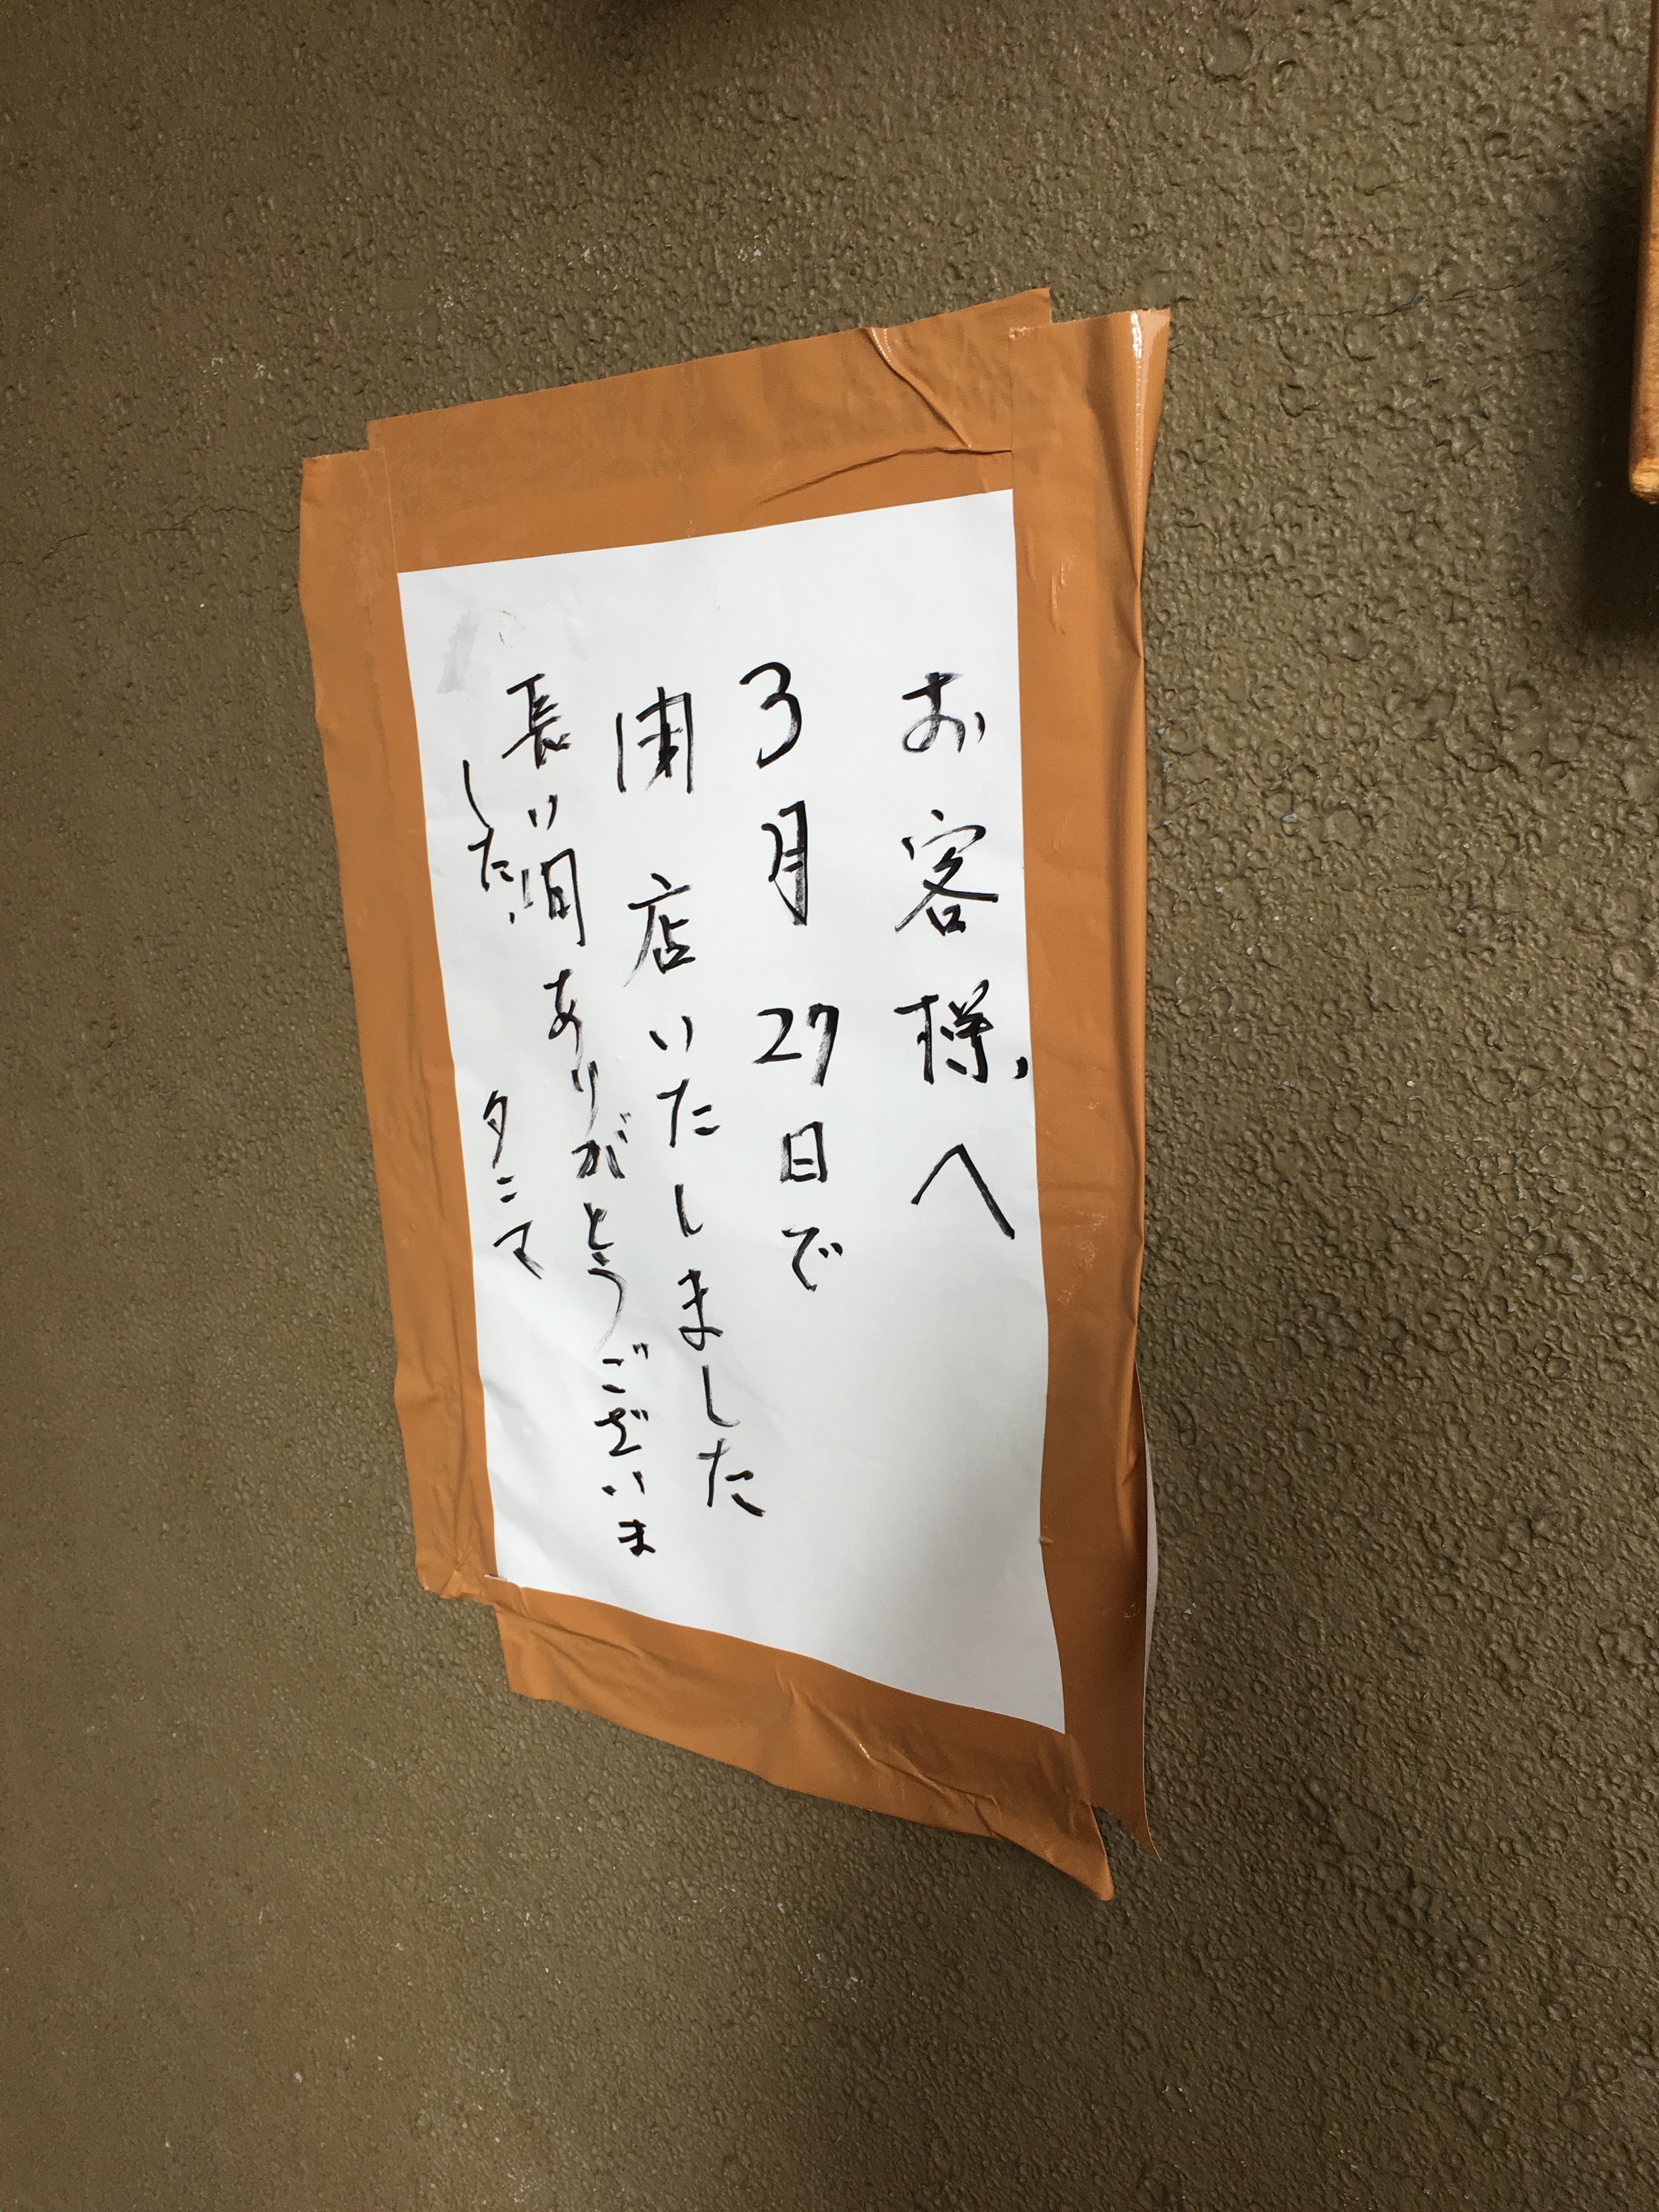 お客様へ
3月27日で
閉店いたしました
長い間ありがとうございま
した、
タニマ